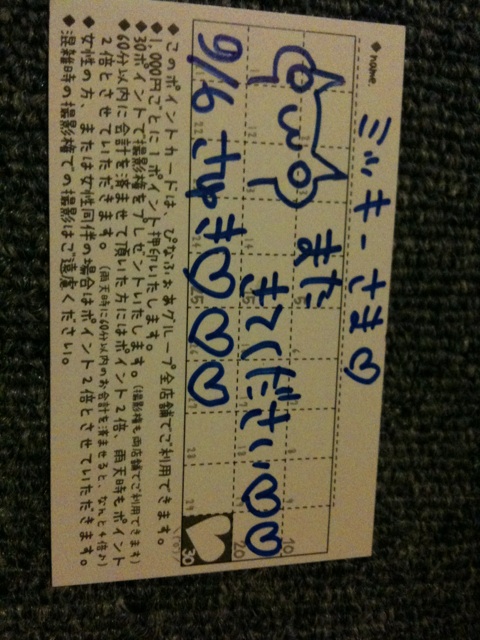 ◆name
ミッキーさま♡
また
きてくださいっ♡♡
9/6 さゆき♡♡♡
10
20
30
◆このポイントカードは、ぴなふぉあグループ全店舗でご利用できます。
◆1,000円ごとに1ポイント押印いたします。
◆30ポイントで撮影権をプレゼントいたします。(撮影権も両店舗でご利用できます)
◆60分以内に会計を済ませて頂いた方にはポイント2倍、雨天時もポイント
2倍とさせていただきます。(雨天時に60分以内のお会計を済ませると、なんと4倍♪)
◆女性の方、または女性同伴の場合はポイント2倍とさせていただきます。
◆混雑時の撮影権での撮影はご遠慮ください。